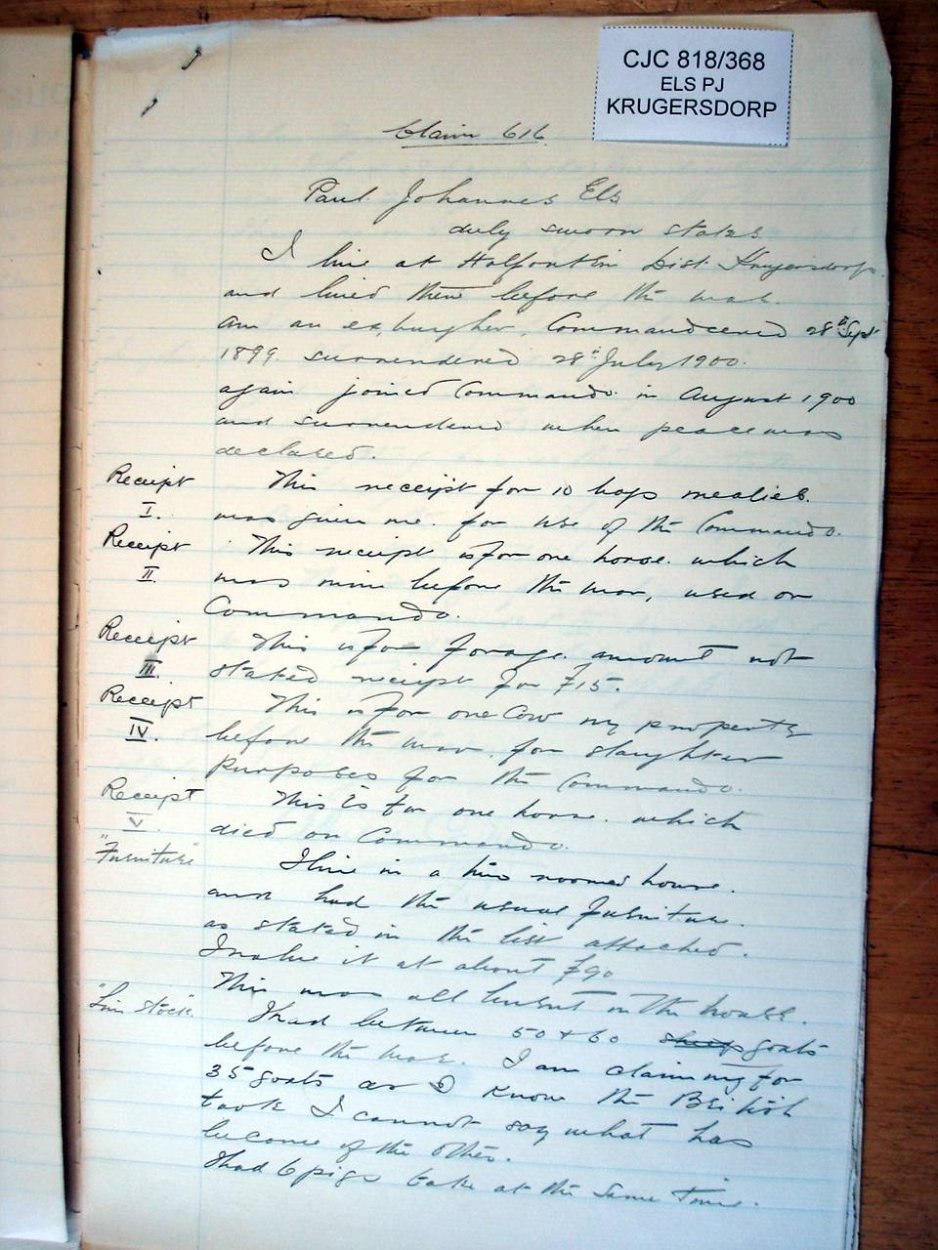 CJC 818/368
ELS PJ
KRUGERSDORP
Claim 616
Paul Johannes Els
duly sworn states
I live at Holfontein Dist Krugersdorp
and lived there before the war.
am an ex burgher, Commandeered 28th Sept
1899 surrendered 28th July 1900.
again joined Commando in August 1900
and surrendered when peace was
declared.
Receipt I. This receipt for 10 bags mealies.
was given me for use of the Commando.
Receipt II. This receipt is for one horse which
was mine before the war, used on
Commando.
Receipt III. This is for forage amount not
stated receipt for £15.
Receipt IV. This is for one Cow my property
before the war for slaughter
purposes for the Commando.
Receipt V. This is for one horse which
died on Commando.
"Furniture" I live in a two roomed house.
and had the usual furniture
as stated in the list attached.
I value it at about £90
This was all burnt in the house.
"Live stock" I had between 50 & 60 sheep goats
before the war. I am claiming for
35 goats as I know the British
took I cannot say what has
become of the others.
I had 6 pigs take at the same time.